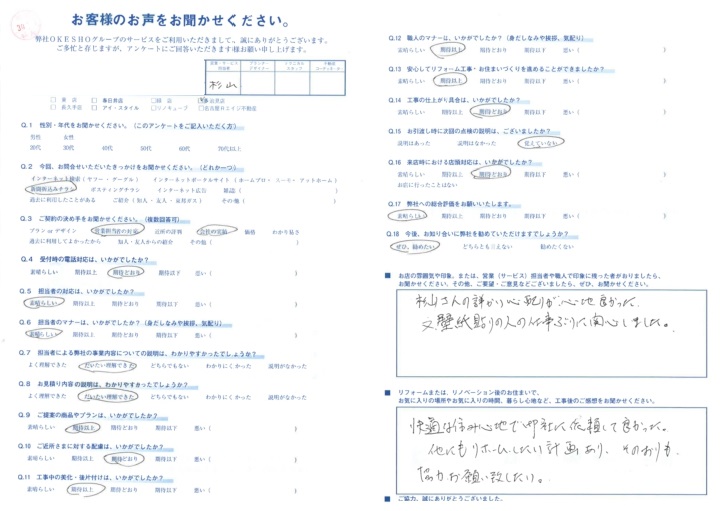 お客様のお声をお聞かせください。
弊社OKESHOグループのサービスをご利用いただきまして、誠にありがとうございます。
ご多忙と存じますが、アンケートにご回答いただきます様お願い申し上げます。
杉山
Q.1 性別・年代をお聞かせください。(このアンケートをご記入いただく方)
男性 女性
20代 30代 40代 50代 60代 70代以上
Q.2 今回、お問合せいただいたきっかけをお聞かせください。(どれか一つ)
インターネット検索(ヤフー・グーグル) インターネットポータルサイト(ホームプロ・ ・アットホーム)
新聞折込みチラシ ポスティングチラシ インターネット広告 雑誌( )
過去に対応したことがある ご紹介( ) その他( )
Q.3 ご契約の決め手をお聞かせください。(複数回答可)
プラン or デザイン 営業担当者の対応 近所の評判 会社の実績 価格 わかり易さ
過去に利用してよかったから 知人・友人からの紹介 その他( )
Q.4 受付時の電話対応は、いかがでしたか?
素晴らしい 期待以上 期待どおり 期待以下 悪い( )
Q.5 担当者の対応は、いかがでしたか?
素晴らしい 期待以上 期待どおり 期待以下 悪い( )
Q.6 担当者のマナーは、いかがでしたか?(身だしなみや挨拶、気配り)
素晴らしい 期待以上 期待どおり 期待以下 悪い( )
Q.7 担当者による弊社の事業内容についての説明は、わかりやすかったでしょうか?
よく理解できた だいたい理解できた どちらでもない わかりにくかった 説明がなかった
Q.8 お見積り内容の説明は、わかりやすかったでしょうか?
よく理解できた だいたい理解できた どちらでもない わかりにくかった 説明がなかった
Q.9 ご提案の商品やプランは、いかがでしたか?
素晴らしい 期待以上 期待どおり 期待以下 悪い( )
Q.10 ご近所さまに対する配慮は、いかがでしたか?
素晴らしい 期待以上 期待どおり 期待以下 悪い( )
Q.11 工事中の美化・後片付けは、いかがでしたか?
素晴らしい 期待以上 期待どおり 期待以下 悪い( )
Q.12 職人のマナーは、いかがでしたか?(身だしなみや挨拶、気配り)
素晴らしい 期待以上 期待どおり 期待以下 悪い( )
Q.13 安心してリフォーム工事・お住まいづくりを進めることができましたか?
素晴らしい 期待以上 期待どおり 期待以下 悪い( )
Q.14 工事の仕上がり具合は、いかがでしたか?
素晴らしい 期待以上 期待どおり 期待以下 悪い( )
Q.15 お引渡し時に次回の点検の説明は、ございましたか?
説明はあった 説明はなかった 覚えていない
Q.16 来店時における店頭対応は、いかがでしたか?
素晴らしい 期待以上 期待どおり 期待以下 悪い( )
お店に行ったことはない
Q.17 弊社への総合評価をお願いいたします。
素晴らしい 期待以上 期待どおり 期待以下 悪い( )
Q.18 今後、お知り合いに弊社を勧めていただけますでしょうか?
ぜひ、勧めたい どちらとも言えない 勧めたくない
■ お店の雰囲気や印象、または、営業(サービス)担当者や職人で印象に残った者がおりましたら、
お聞かせください。その他、ご要望・ご意見などございましたら、ぜひ、お聞かせください。
杉山さんの 心配りが心地良かった
又壁紙貼りの人の仕事ぶりに関心しました。
■ リフォームまたは、リノベーション後のお住まいで、
お気に入りの場所やお気に入りの時間、暮らし心地など、工事後のご感想をお聞かせください。
快適な住み心地で御社に依頼して良かった。
他にもリホームしたい計画あり、そのおりも
協力お願い致したい。
■ ご協力、誠にありがとうございました。